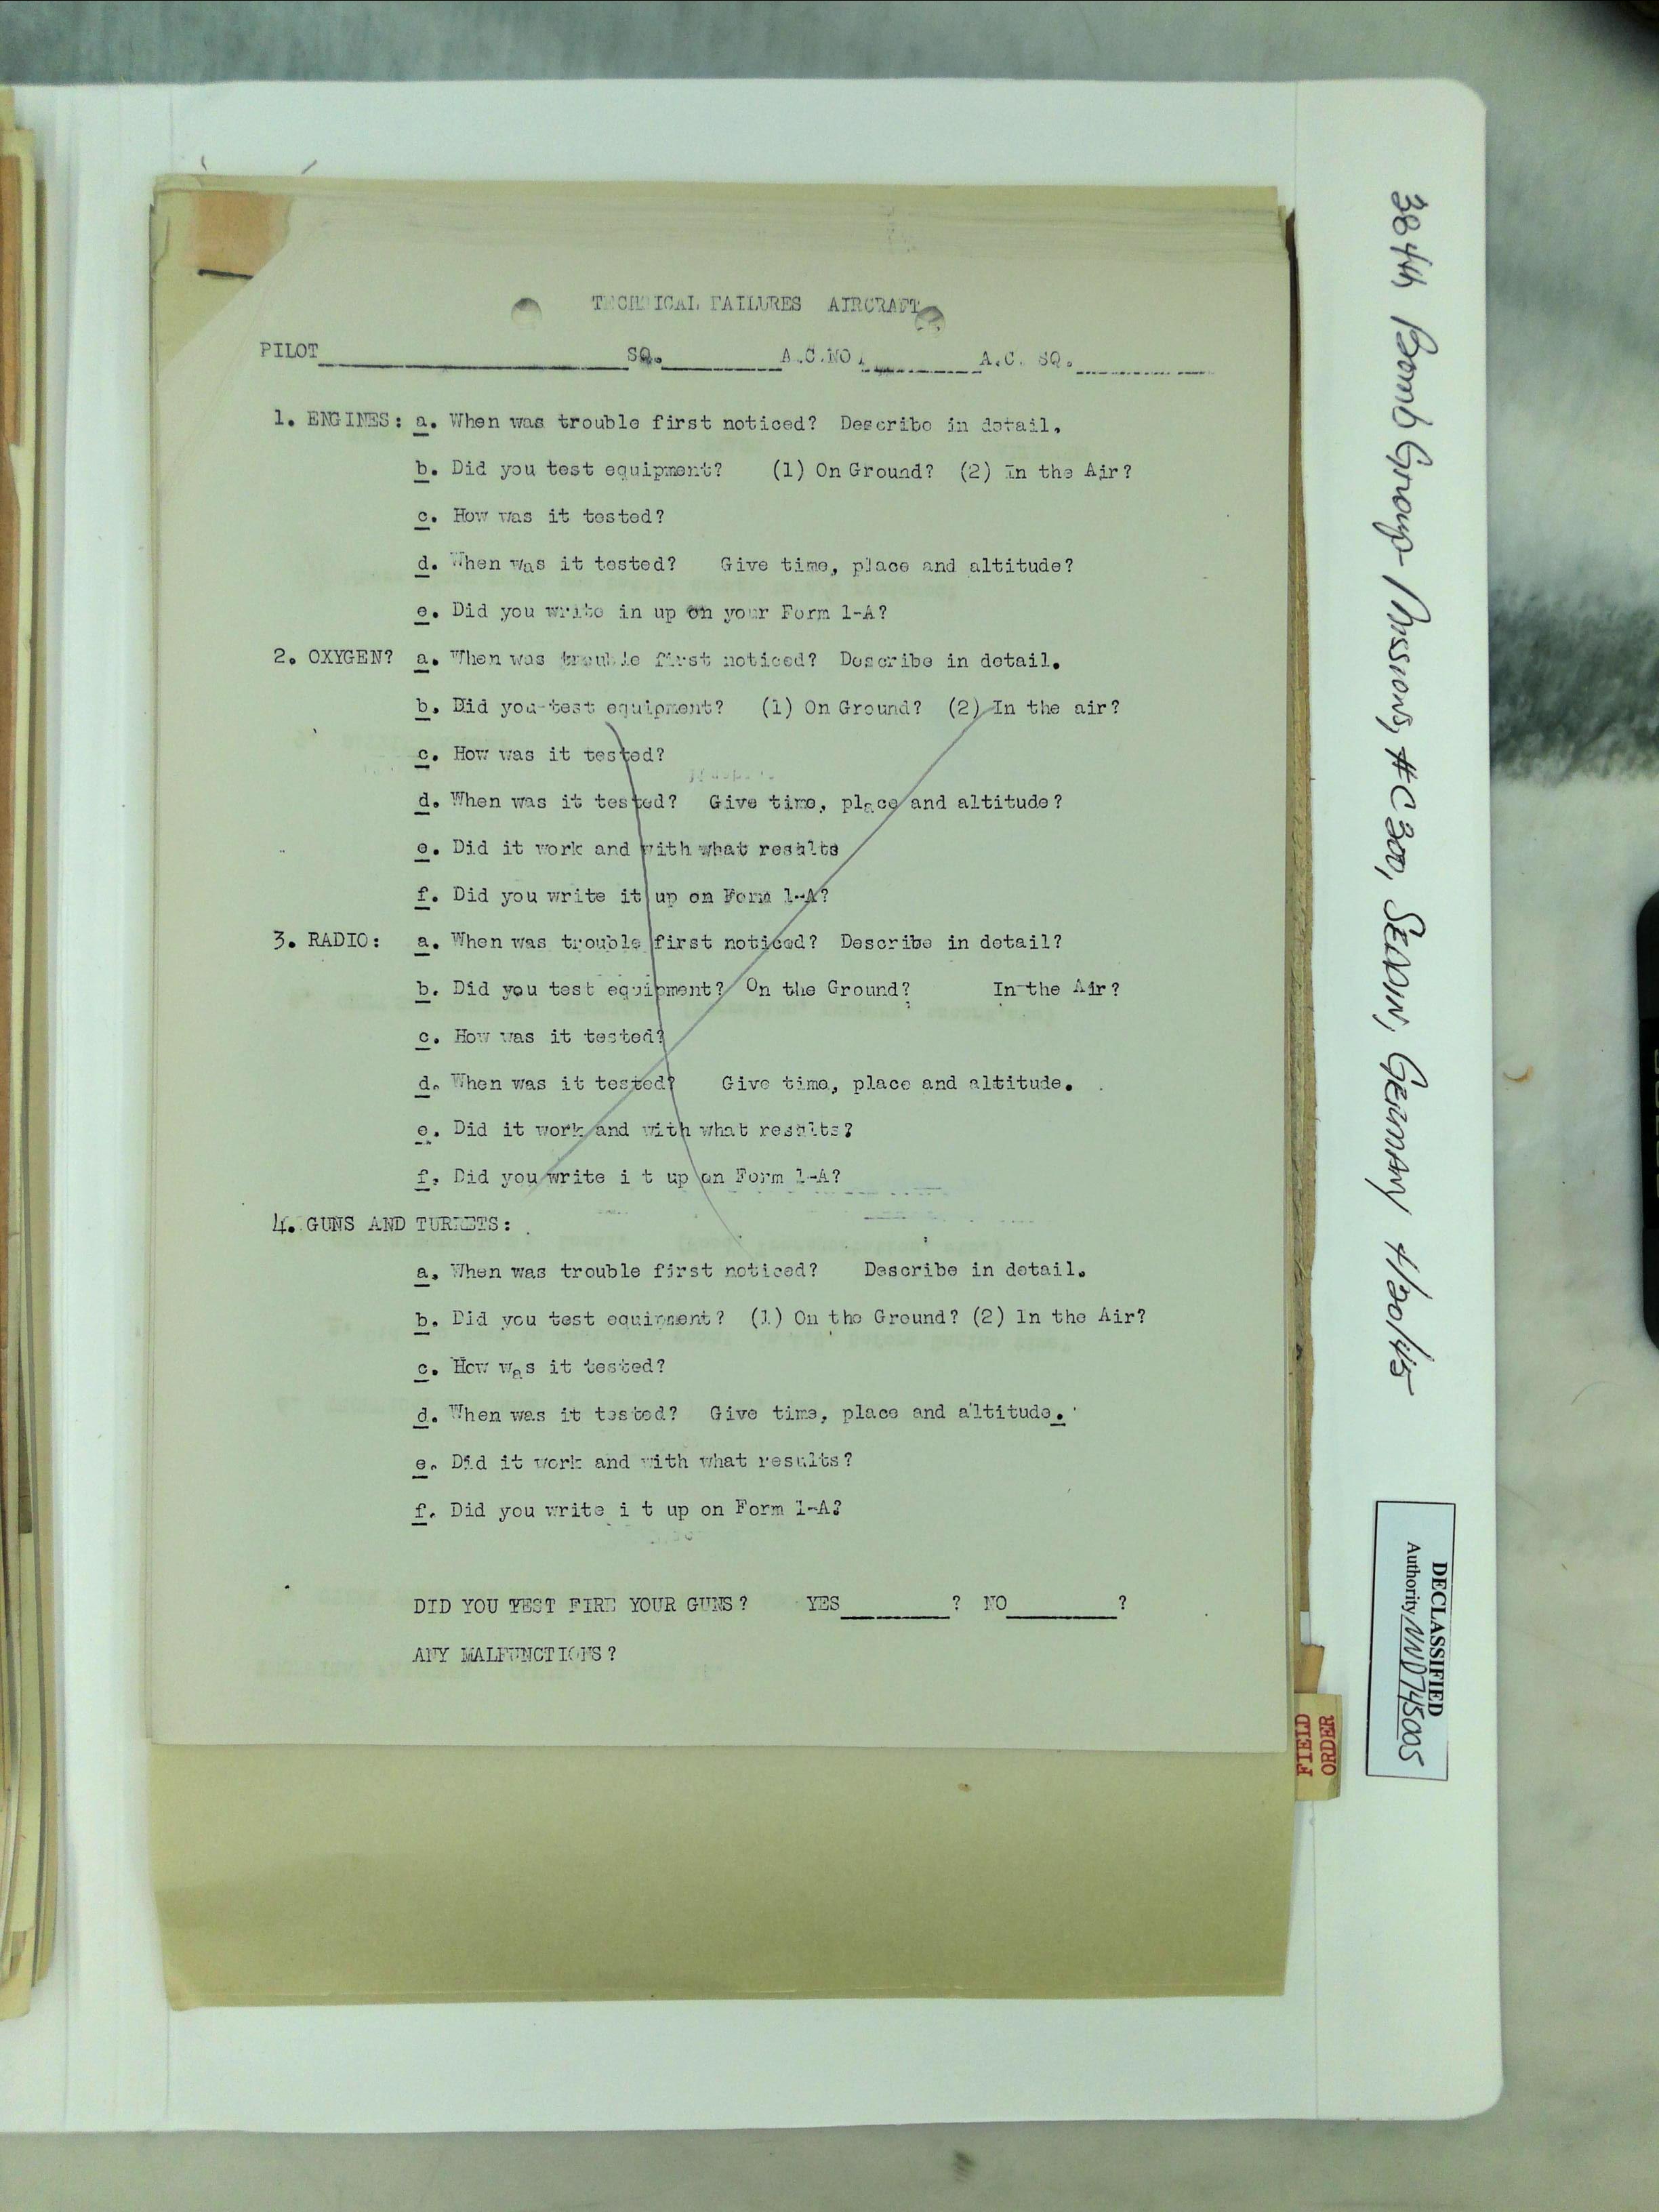 TECHNICAL FAILURES AIRCRAFT
PILOT____________ SQ.______ A.C.NO.______ A.C. SQ.______
1. ENGINES: a. When was trouble first noticed? Describe in detail.
b. Did you test equipment? (1) On Ground? (2) In the Air?
c. How was it tested?
d. When was it tested? Give time, place and altitude?
e. Did you write in up on your Form 1-A?
2. OXYGEN? a. When was trouble first noticed? Describe in detail.
b. Did you test equipment? (1) On Ground? (2) In the air?
c. How was it tested?
d. When was it tested? Give time, place and altitude?
e. Did it work and with what results
f. Did you write it up on Form 1-A?
3. RADIO: a. When was trouble first noticed? Describe in detail?
b. Did you test equipment? On the Ground? In the Air?
c. How was it tested?
d. When was it tested? Give time, place and altitude.
e. Did it work and with what results?
f. Did you write i t up on Form 1-A?
4. GUNS AND TURRETS:
a. When was trouble first noticed? Describe in detail.
b. Did you test equipment? (1) On the Ground? (2) In the Air?
c. How was it tested?
d. When was it tested? Give time, place and altitude.
e. Did it work and with what results?
f. Did you write i t up on Form 1-A?
DID YOU TEST FIRE YOUR GUNS? YES______? NO______?
ANY MALFUNCTIONS?
384th Bomb Group - Missions, #C300, SEDDIN, GERMANY 4/20/45
DECLASSIFIED
Authority NND745005
FIELD
ORDER